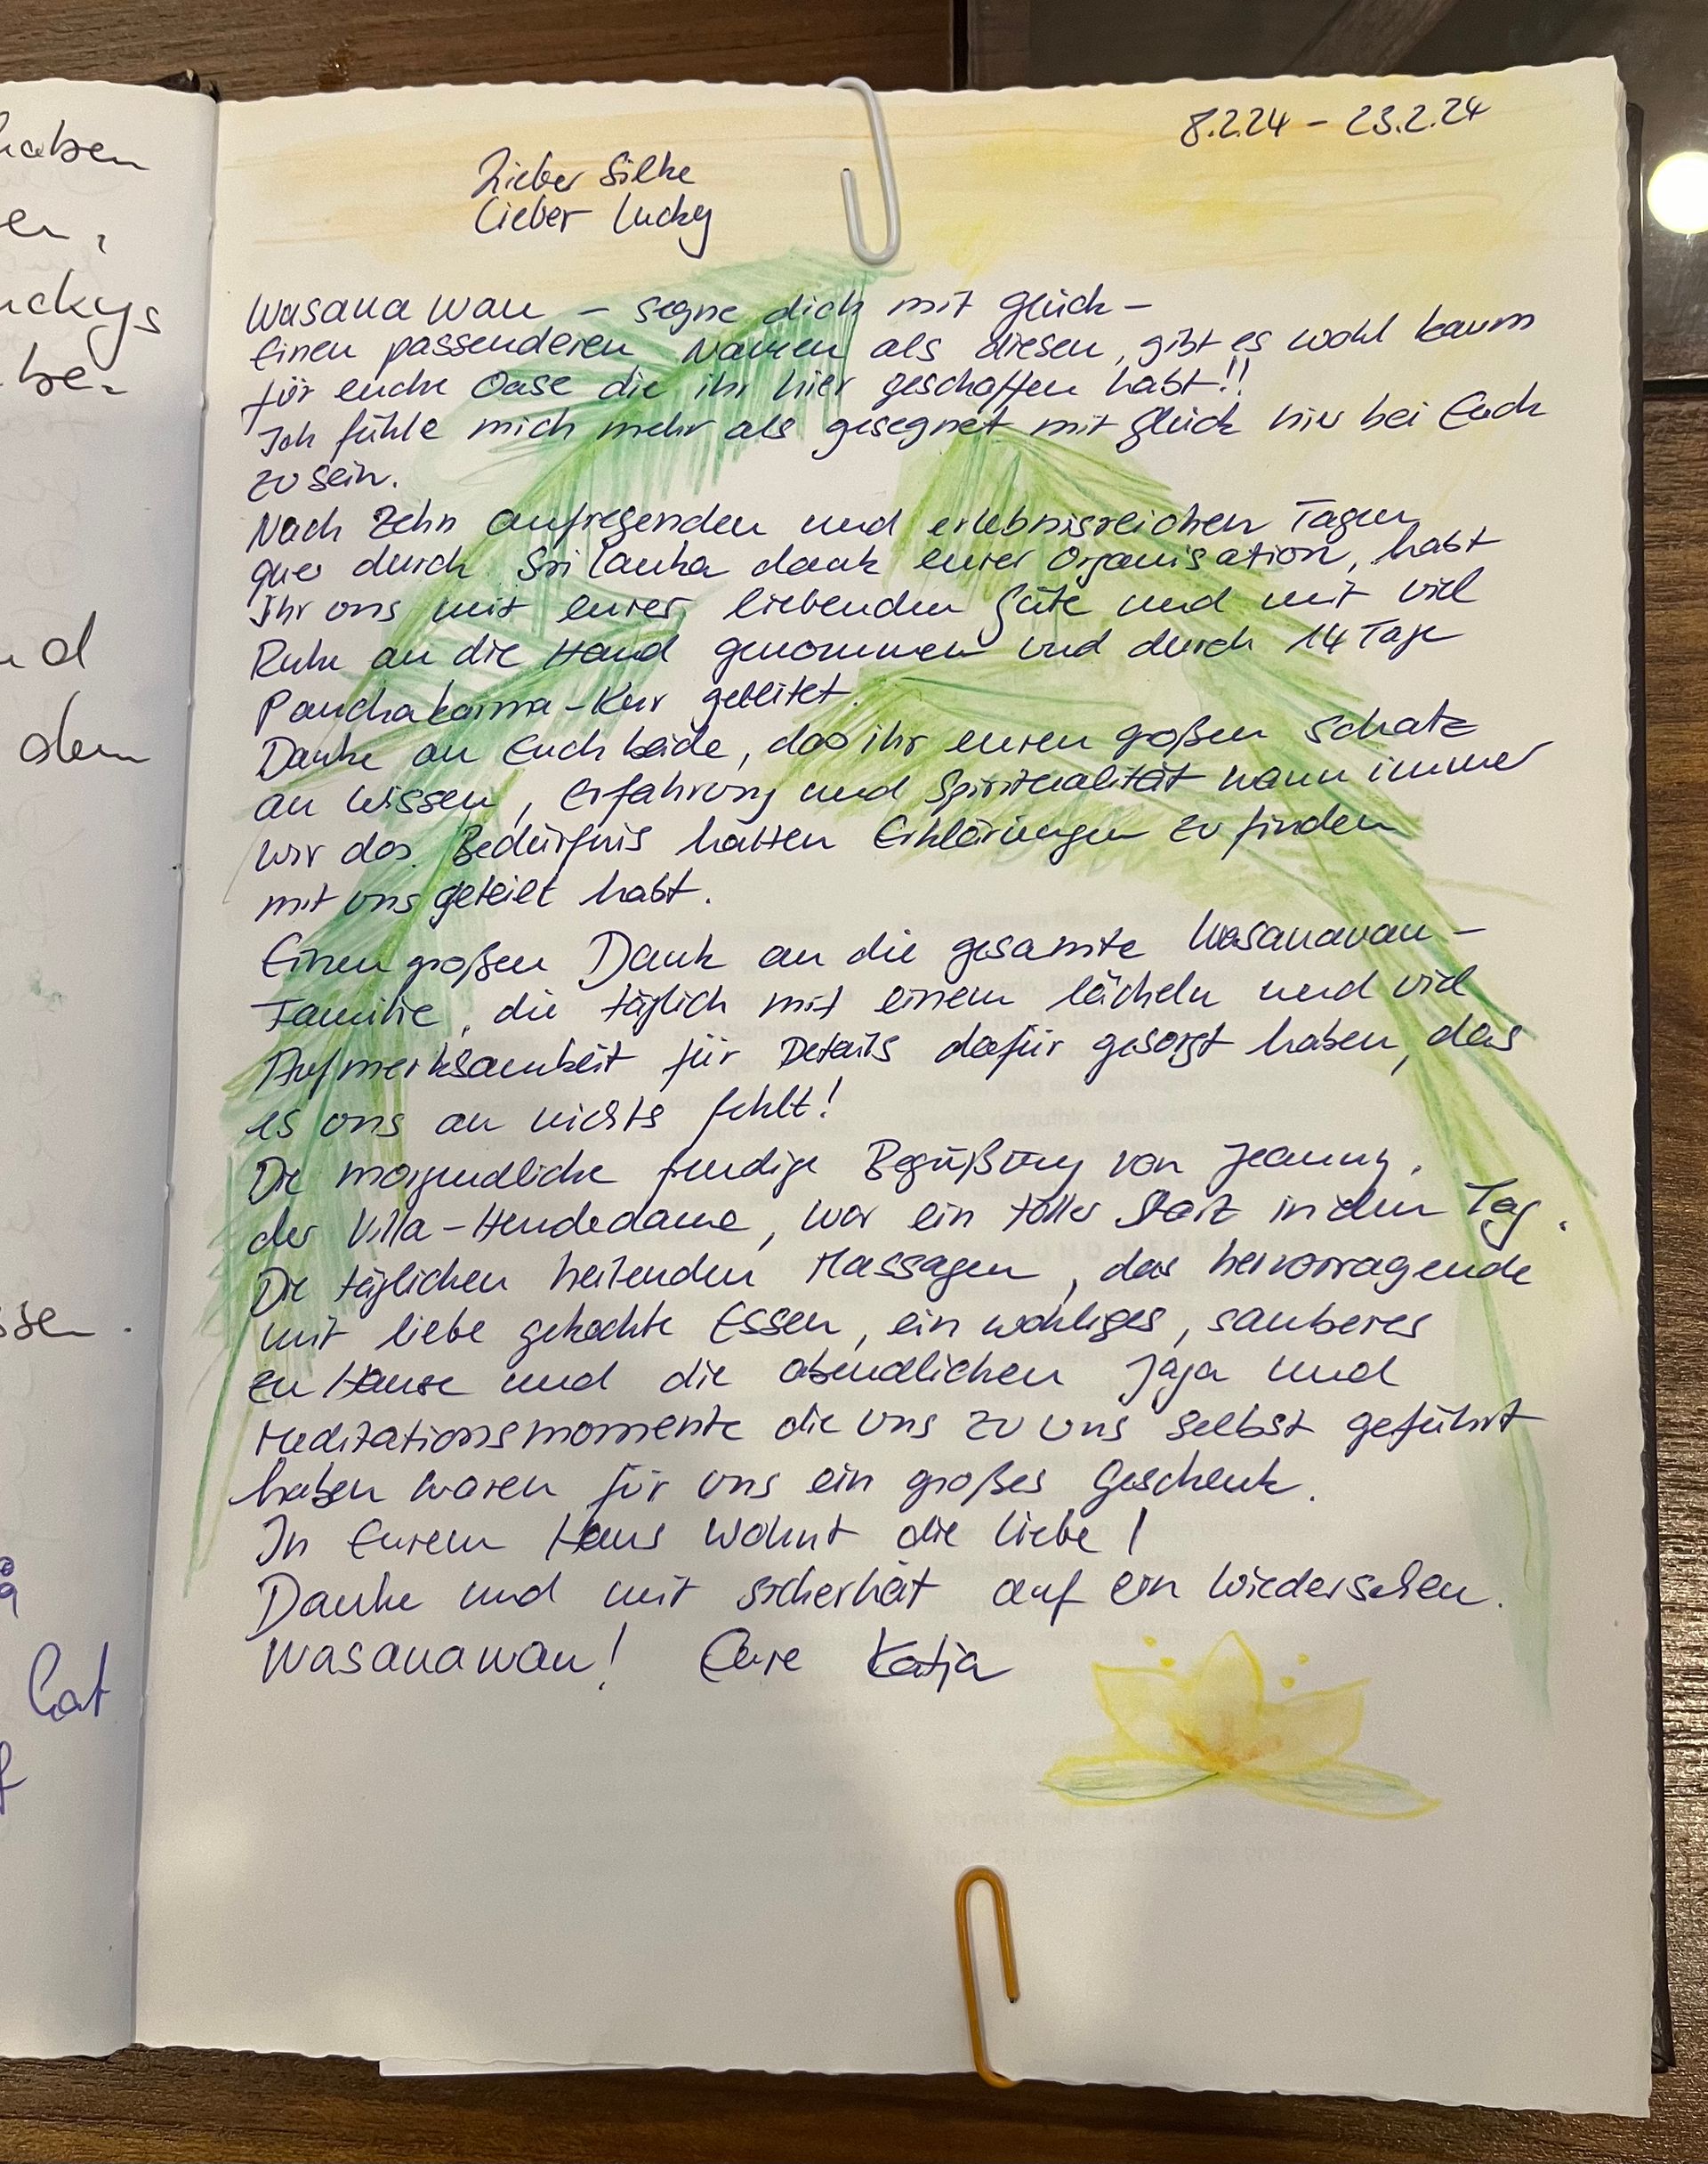 haben
er,
uckys
be-
nd
dem
ssen.
hat
8.2.24 – 23.2.24
Lieber Silke
Lieber Lucky
Wasana Wan – segne dich mit Glück –
Einen passenderen Namen als diesen, gibt es wohl kaum
für euche Oase die ihr hier geschaffen habt!!
Ich fühle mich mehr als gesegnet mit Glück hier bei Euch
zu sein.
Nach Zehn aufregenden und erlebnisreichen Tagen
quer durch Sri Lanka dank eurer Organisation, habt
Ihr uns mit eurer liebenden Güte und mit viel
Ruhe an die Hand genommen und durch 14 Tage
Panchakarma-Kur geleitet.
Danke an Euch beide, das ihr euren großen Schatz
an Wissen, Erfahrung und Spiritualität wann immer
wir das Bedürfnis hatten Erklärungen zu finden
mit uns geteilt habt.
Einen großen Dank an die gesamte Wasanawan –
Familie, die täglich mit einem lächeln und viel
Aufmerksamkeit für Details dafür gesorgt haben, das
es uns an nichts fehlt!
Die morgendliche freudige Begüßung von Jeanny,
der Villa-Hundedame, war ein toller Start in den Tag.
Die täglichen heilenden Massagen, das hervorragende
mit liebe gekochte Essen, ein wohliges, sauberes
zu Hause und die abendlichen Joga und
Meditationsmomente die uns zu uns selbst geführt
haben waren für uns ein großes Geschenk.
In Eurem Haus wohnt die Liebe!
Danke und mit sicherheit auf ein Wiedersehen.
Wasanawan! Eure Katja